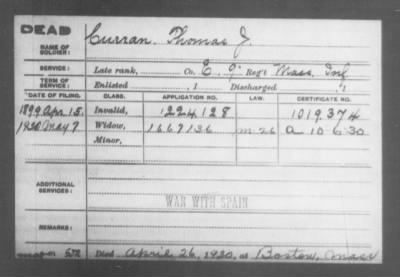 DEAD
NAME OF SOLDIER: Curran, Thomas J.
SERVICE: Late rank, Co. E, 9" Reg't Mass. Inf
TERM OF SERVICE: Enlisted , 1 Discharged , 1
DATE OF FILING. CLASS. APPLICATION NO. LAW. CERTIFICATE NO.
1899 Apr. 15. Invalid, 1224128 1019.374
1930 May 7 Widow, 1667136 m-26 A 10-6-30
Minor,
ADDITIONAL SERVICES:
WAR WITH SPAIN
REMARKS:
Died April 26, 1930, at Boston, Mass